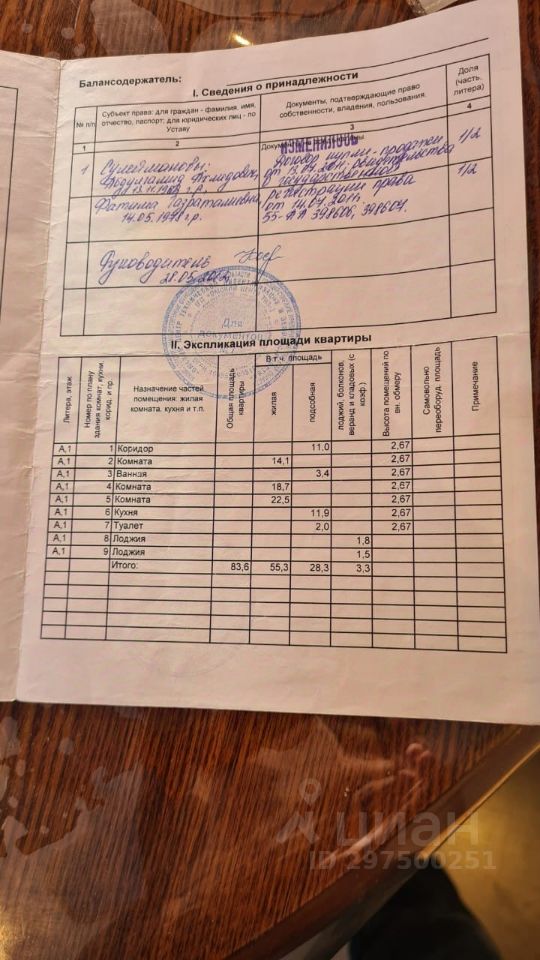 Балансодержатель:
I. Сведения о принадлежности
№ п/п
Субъект права: для граждан - фамилия, имя, отчество, паспорт; для юридических лиц - по Уставу
Документы, подтверждающие право собственности, владения, пользования.
Доля (часть, литера)
1 2 3 4
ИЗМЕНИЛОСЬ
1 Сулеймановы: Договор купли-продажи 1/2
от 13.04.2011г.
государственной
регистрации права 1/2
Фатима
14.05.1971г.р. от 14.04.2011.
55-АА 398606, 398604.
Руководитель
28.05.2012
Для документов
II. Экспликация площади квартиры
Литера, этаж
Номер по плану здания комнат, кухни, корид. и пр.
Назначение частей помещения: жилая комната, кухня и т.п.
Общая площадь квартиры
В т.ч. площадь
жилая
подсобная
лоджий, балконов, веранд и кладовых (с коэф.)
Высота помещений по вн. обмеру
Самовольно переоборуд. площадь
Примечание
А,1 1 Коридор 11,0 2,67
А,1 2 Комната 14,1 2,67
А,1 3 Ванная 3,4 2,67
А,1 4 Комната 18,7 2,67
А,1 5 Комната 22,5 2,67
А,1 6 Кухня 11,9 2,67
А,1 7 Туалет 2,0 2,67
А,1 8 Лоджия 1,8
А,1 9 Лоджия 1,5
Итого: 83,6 55,3 28,3 3,3
циан
ID 297500251